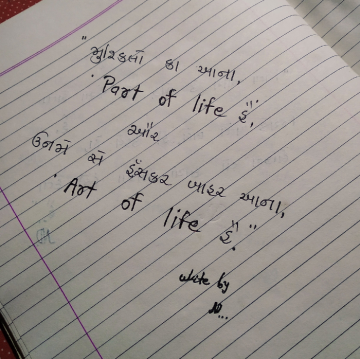 "મુશ્કિલોં કા આના,
'Part of life' હૈ,
ઔર
ઉનમેં સે હઁસકર બાહર આના,
'Art of life' હૈ."
write by
N...